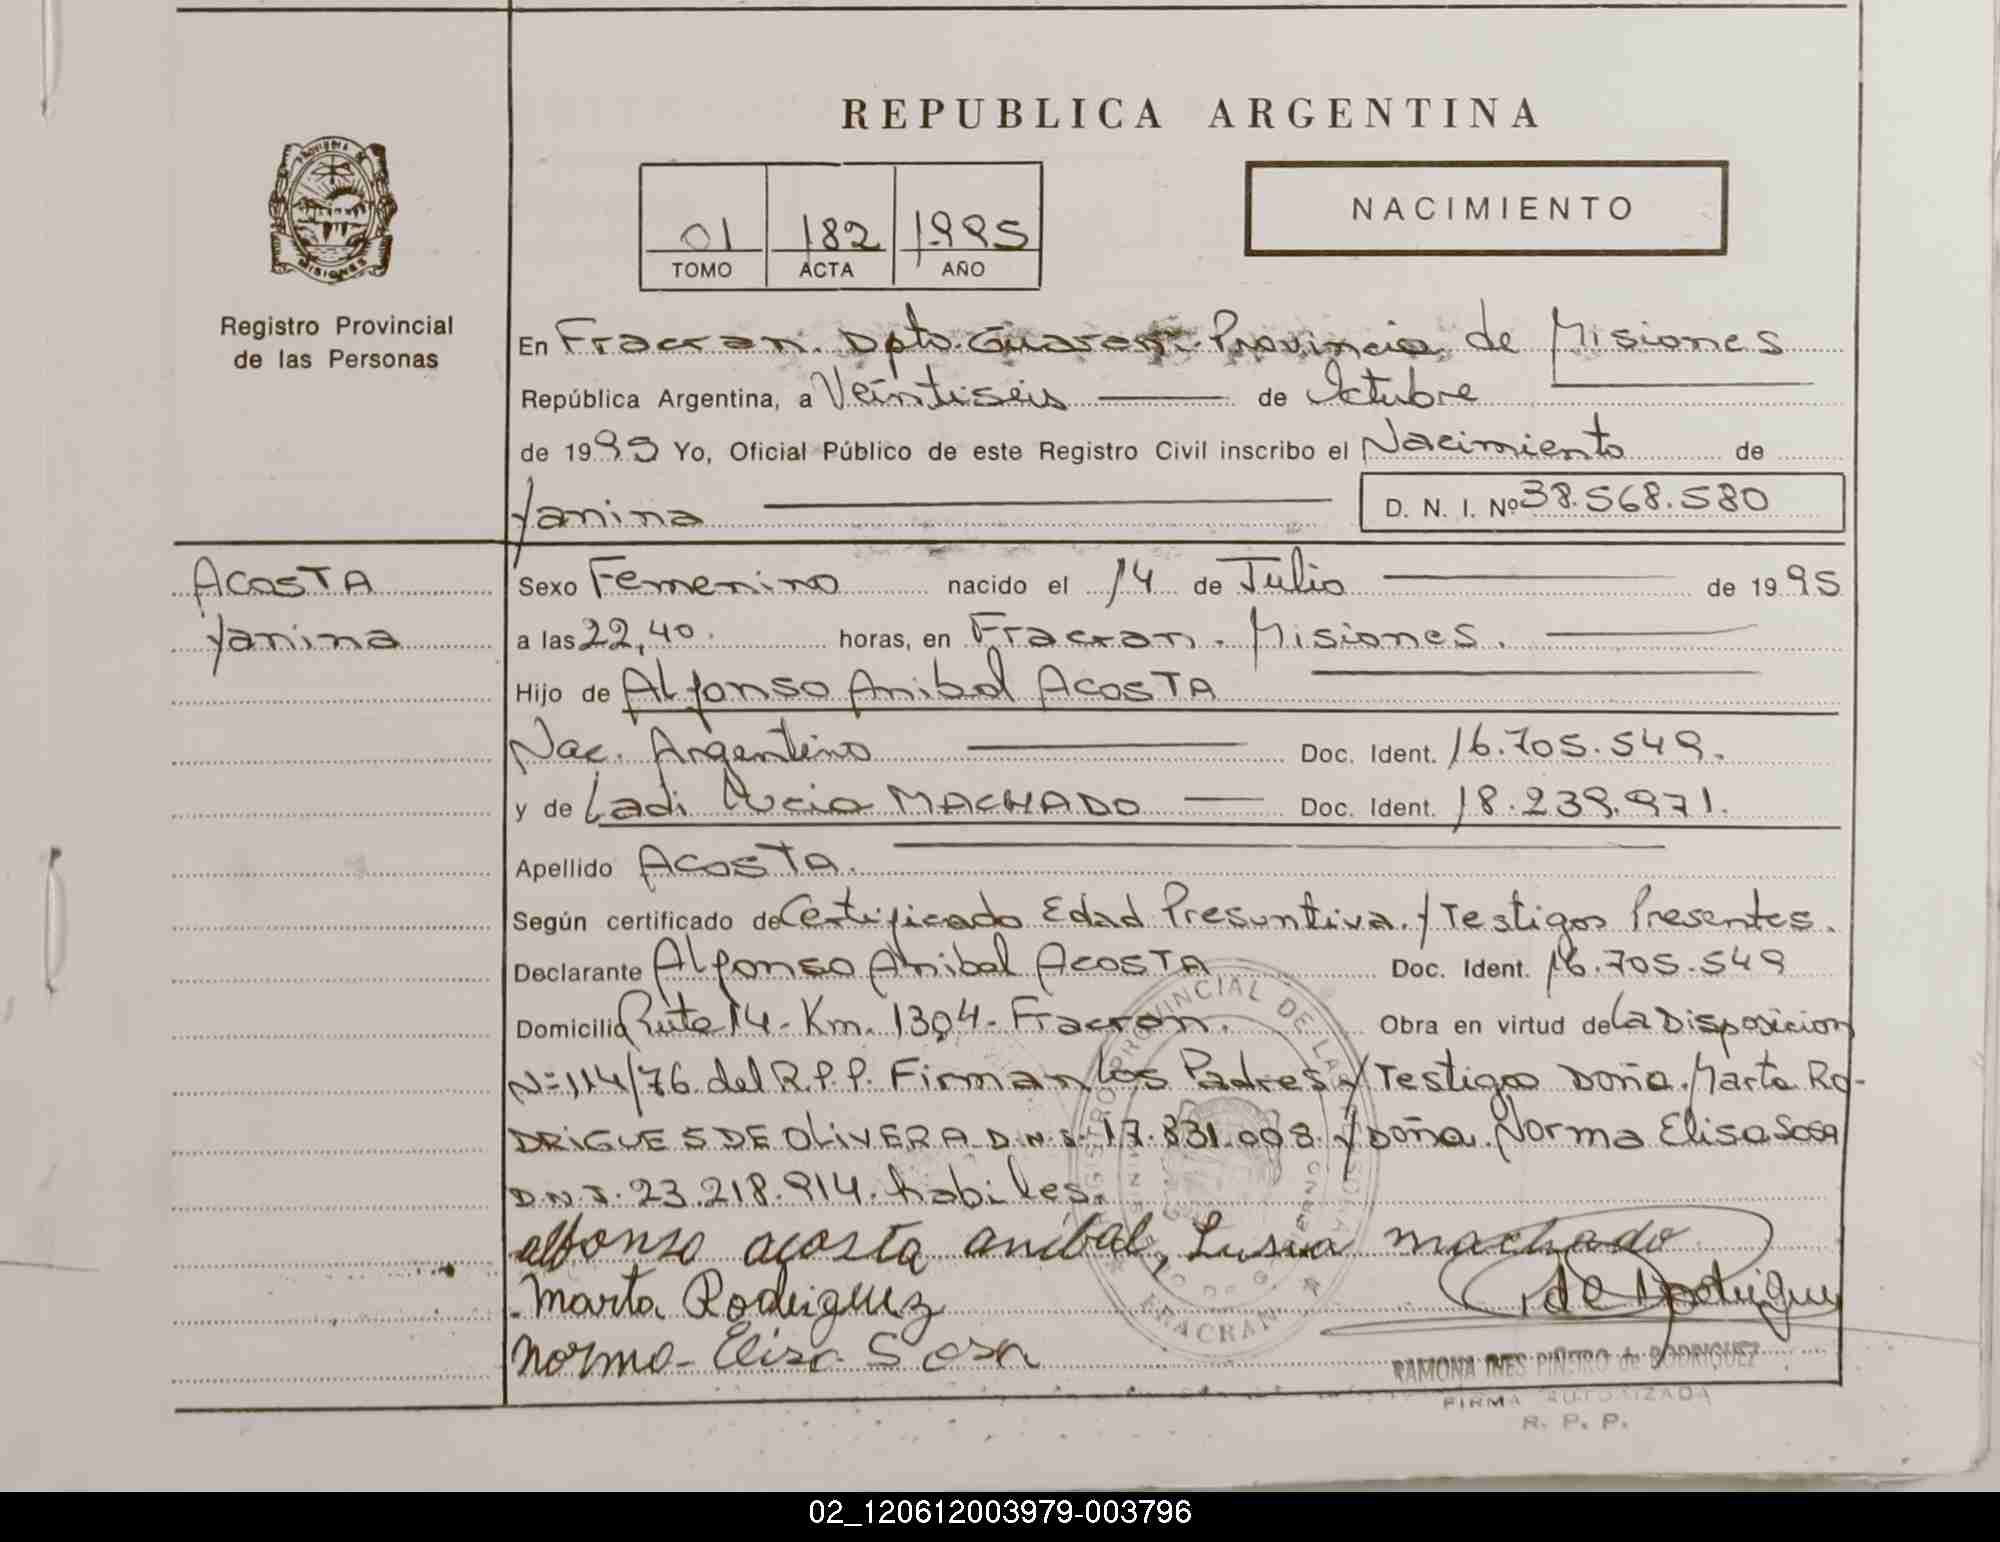 REPUBLICA ARGENTINA
NACIMIENTO
01 182 1995
TOMO ACTA AÑO
PROVINCIA DE
MISIONES
Registro Provincial
de las Personas
En Fracran. Dpto. Guarani. Provincia de Misiones
República Argentina, a Veintiseis de Octubre
de 1995 Yo, Oficial Público de este Registro Civil inscribo el Nacimiento de
Yanina D. N. I. Nº 38.568.580
ACOSTA
Yanina
Sexo Femenino nacido el 14 de Julio de 1995
a las 22,40. horas, en Fracran. Misiones.
Hijo de Alfonso Anibal ACOSTA
Nac. Argentino Doc. Ident. 16.705.549.
y de Ladi Lucia MACHADO Doc. Ident. 18.239.971.
Apellido ACOSTA.
Según certificado de Certificado Edad Presuntiva. y Testigos Presentes.
Declarante Alfonso Anibal ACOSTA Doc. Ident. 16.705.549
Domicilio Ruta 14 - Km. 1304 - Fracran. Obra en virtud de La Disposicion
Nº 114/76 del R.P.P. Firman los Padres y Testigos Doña. Marta RO-
DRIGUES DE OLIVERA D.N.I. 17.831.098. y Doña. Norma Elisa Sosa
D.N.I. 23.218.914. habiles.
alfonso acosta anibal, Lusia machado
Marta Rodriguez
Norma Elisa Sosa
de Rodriguez
REGISTRO PROVINCIAL DE LAS PERSONAS
FRACRAN
RAMONA INES PIÑEIRO de RODRIGUEZ
FIRMA AUTORIZADA
R. P. P.
02_120612003979-003796